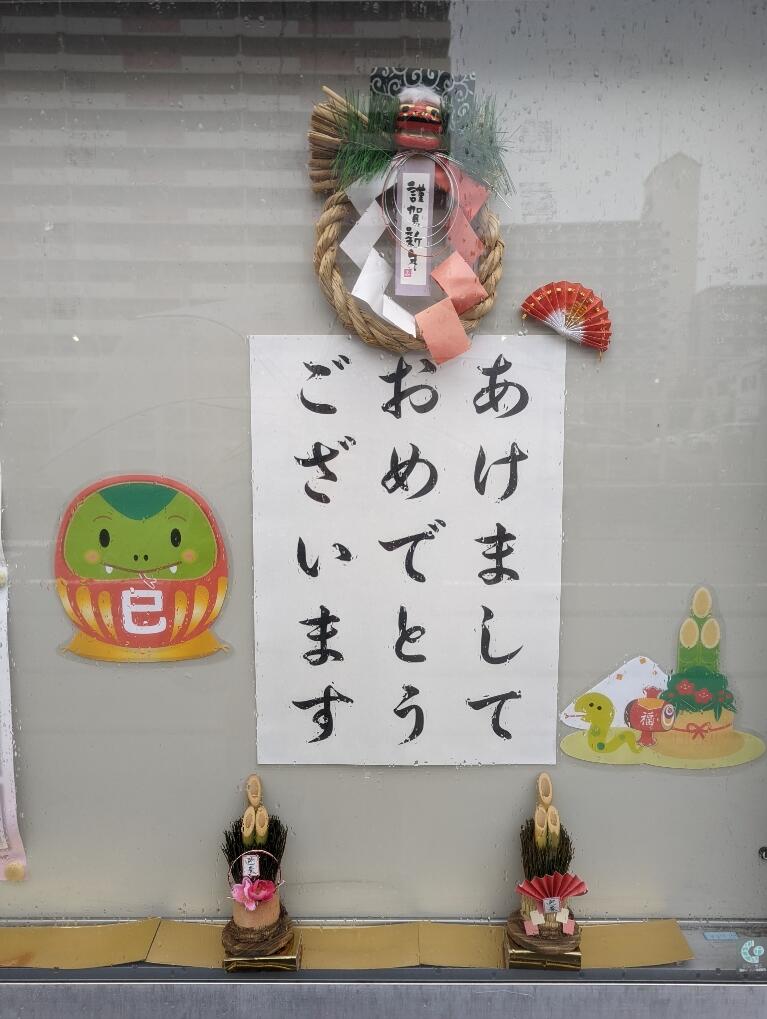 謹賀新年
あけまして
おめでとう
ございます
巳
福